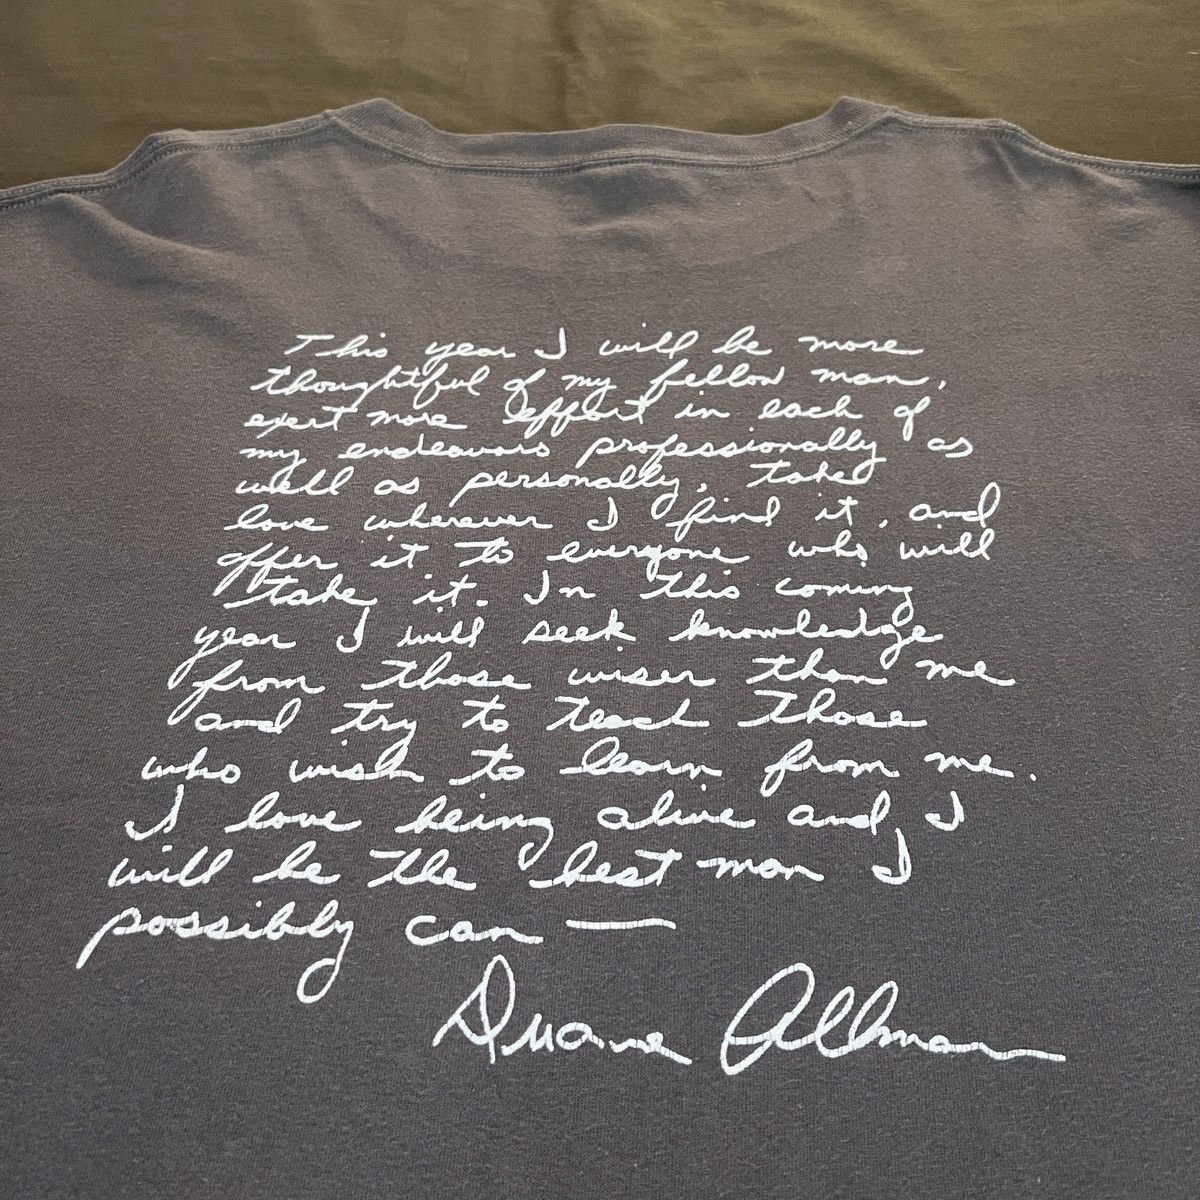 This year I will be more
thoughtful of my fellow man,
exert more effort in each of
my endeavors professionally as
well as personally, take
love wherever I find it, and
offer it to everyone who will
take it. In this coming
year I will seek knowledge
from those wiser than me
and try to teach those
who wish to learn from me.
I love being alive and I
will be the best man I
possibly can —
Duane Allman